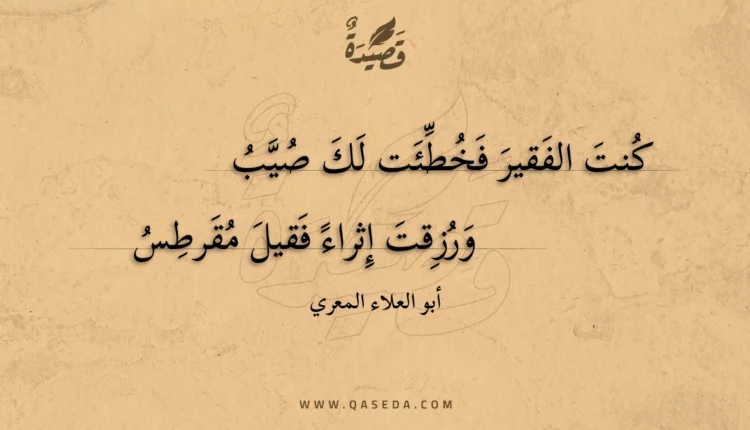 قَصِيْدَةٌ
كُنتَ الفَقيرَ فَخُطِّئَت لَكَ صُيَّبُ
وَرُزِقتَ إِثراءً فَقيلَ مُقَرطِسُ
أبو العلاء المعري
WWW.QASEDA.COM